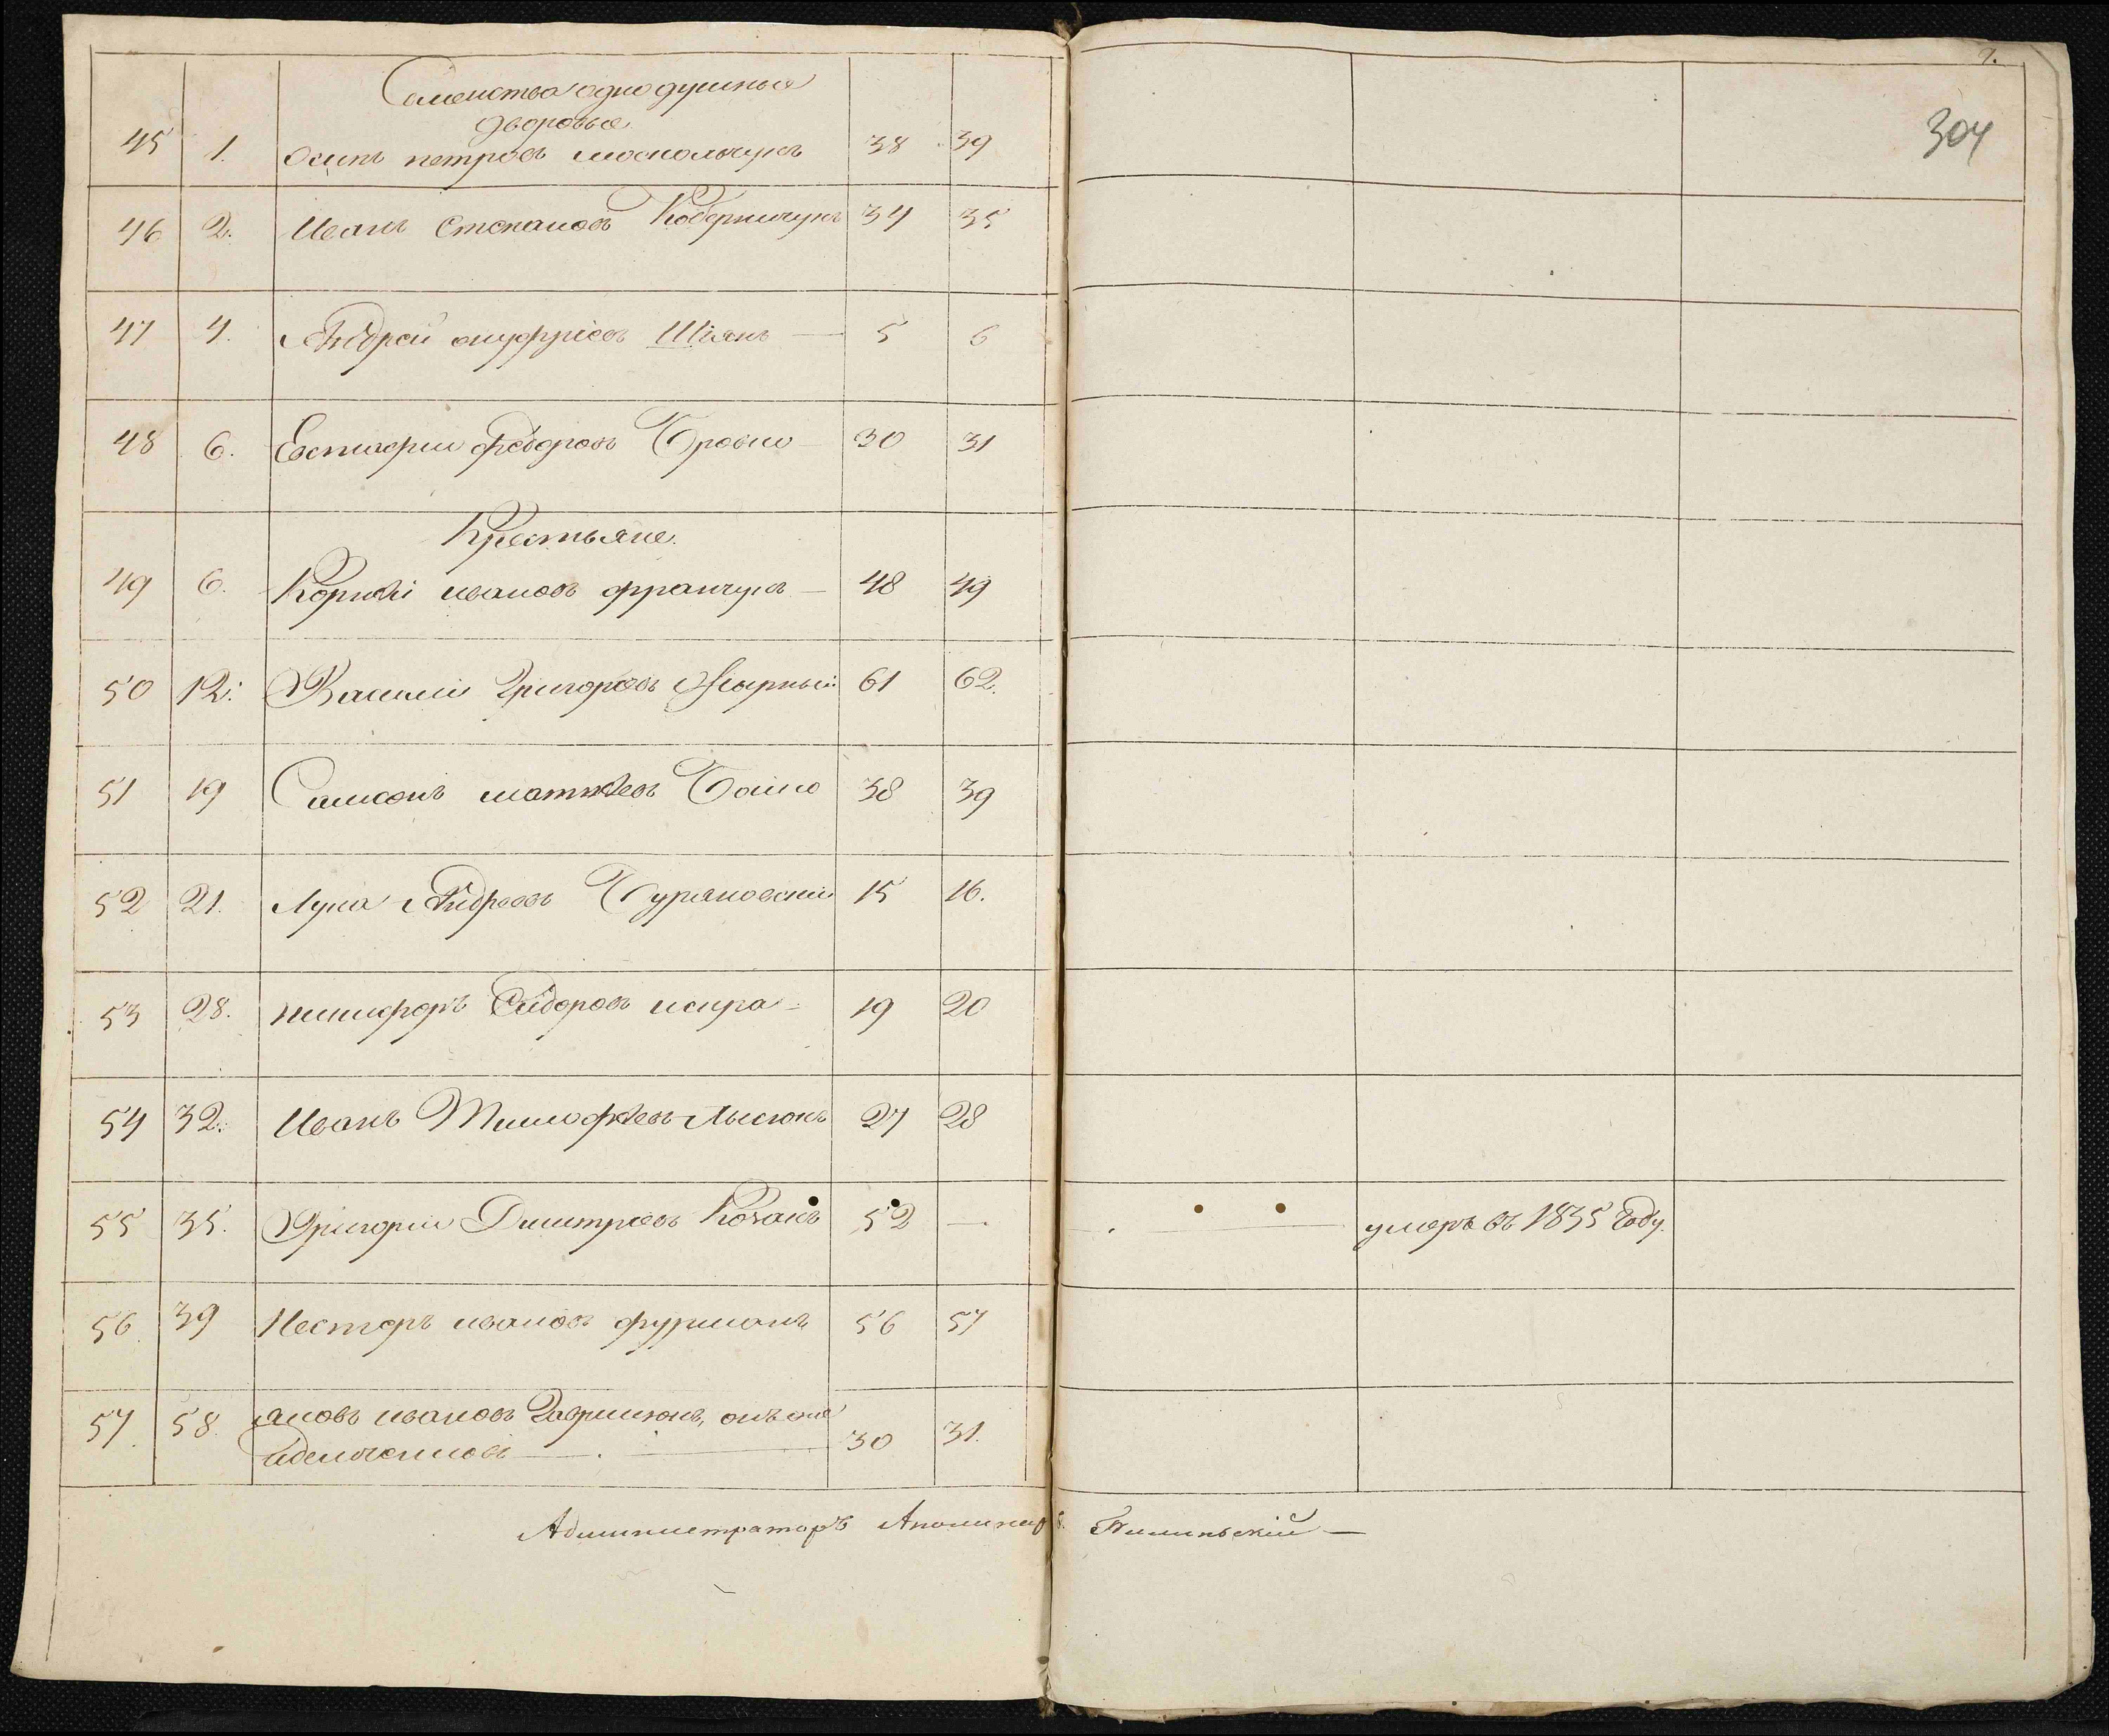 7.
304
Семейства однодушные
дворовые
45 1. Осипъ петровъ москальчукъ 38 39
46 2. Иванъ Степановъ Коберничукъ 34 35
47 4. Андрей онуфріевъ Шіянъ — 5 6
48 6. Евстафій федоровъ Бровко 30 31
Крестьяне.
49 6. Корнѣй ивановъ франчукъ — 48 49
50 12. Василій Григорьевъ 61 62.
51 19 Самсонъ матвѣевъ Бойко 38 39
52 21. Лука Андреевъ Буряновскій 15 16.
53 28. никифоръ Сидоровъ искра — 19 20
54 32. Иванъ Тимофѣевъ Лысюкъ 27 28
55 35. Григорій Дмитріевъ Козакъ 52 — умеръ въ 1835 Году.
56 39 Несторъ ивановъ фурманъ 56 57
57. 58. яковъ ивановъ Гаврилюкъ, онъ же
30 31.
Администраторъ Пилиньскій —